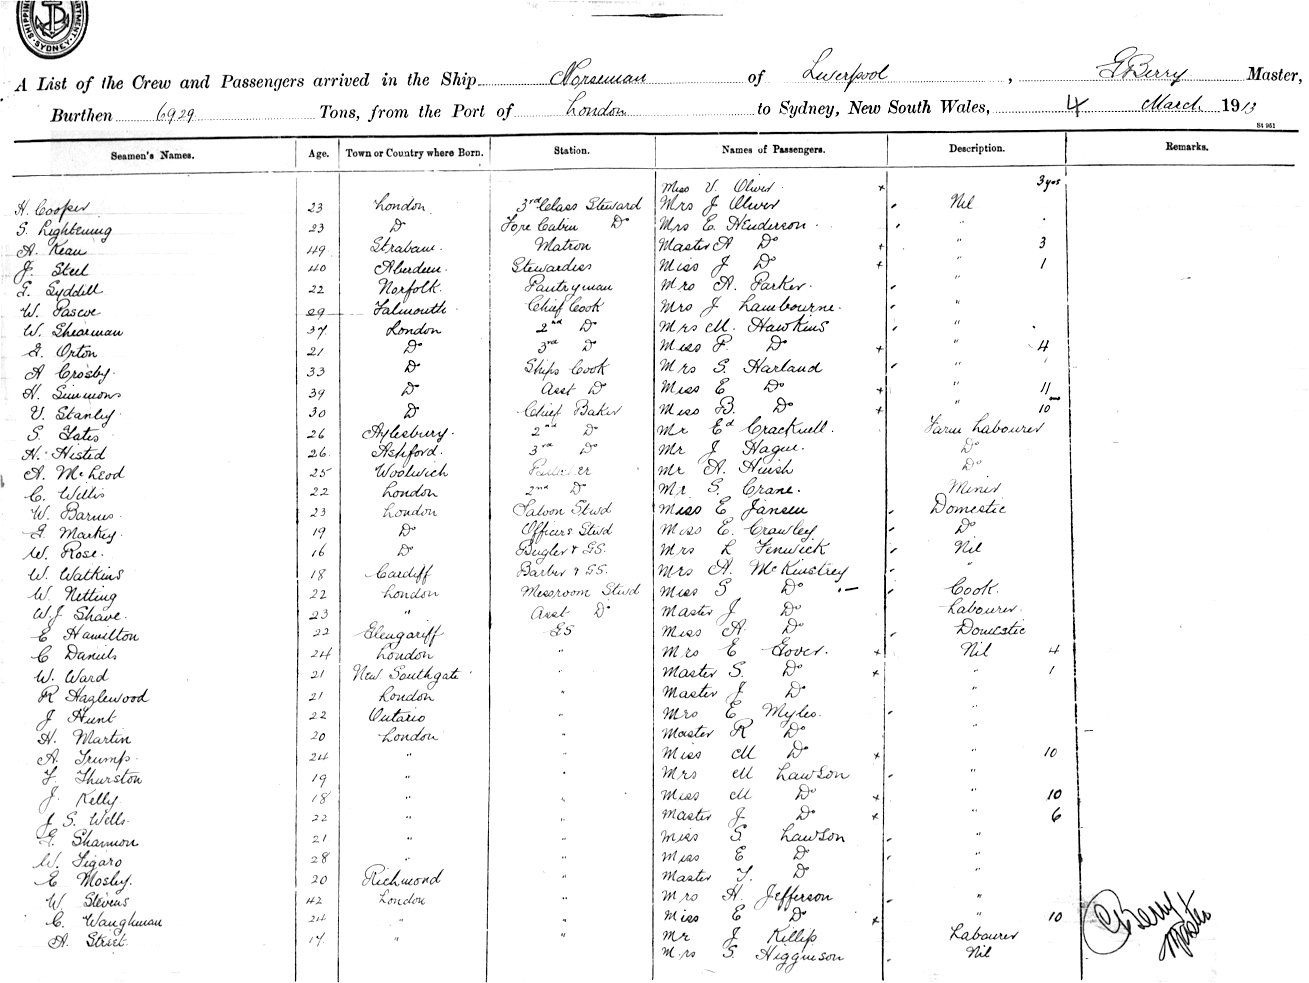 SHIPPING DEPARTMENT SYDNEY
A List of the Crew and Passengers arrived in the Ship Norseman of Liverpool, G Berry Master,
Burthen 6929 Tons, from the Port of London to Sydney, New South Wales, 4 March 1913
St 961
Seamen's Names. Age. Town or Country where Born. Station. Names of Passengers. Description. Remarks.
Miss V. Oliver. x 3 yrs
H. Cooper 23 London 3rd Class Steward Mrs J Oliver Nil
S. Lightening 23 Do Fore Cabin Do Mrs E. Henderson "
A. Kean 49 Strabane Matron Master A Do x " 3
J. Steel 40 Aberdeen Stewardess Miss J Do x " 1
G. Lyddell 22 Norfolk Pantryman Mrs A. Parker "
W. Pascoe 29 Falmouth Chief Cook Mrs J Lambourne "
W. Shearman 37 London 2nd Do Mrs M. Hawkins "
G. Orton 21 Do 3rd Do Miss F. Do x " 4
A Crosby 33 Do Ships Cook Mrs S. Harland "
H. Simmons 39 Do Asst Do Miss E Do x " 11
V. Stanley 30 Do Chief Baker Miss B. Do x " 10 mos
S. Yates 26 Aylesbury 2nd Do Mr Ed Cracknell Farm Labourer
H. Histed 26 Ashford 3rd Do Mr J Hague Do
A. McLeod 25 Woolwich Mr A. Huish Do
C. Willis 22 London 2nd Do Mr S. Crane Miner
W. Barnes 23 London Saloon Stwd Miss E Jansen Domestic
G. Markey 19 Do Officers Stwd Miss E. Crawley Do
W. Rose 16 Do Bugler & GS. Mrs L Fenwick Nil
W. Watkins 18 Cardiff Barber & GS. Mrs A. McKinstrey "
W. Netting 22 London Messroom Stwd Miss S Do Cook
WJ Shave 23 " Asst Do Master J Do Labourer
E Hamilton 22 Glengariff GS Miss A Do Domestic
C Daniels 24 London " Mrs E Gover x Nil 4
W. Ward 21 New Southgate " Master S. Do x " 1
R Hazlewood 21 London " Master J Do "
J Hunt 22 Ontario " Mrs E Myles "
H. Martin 20 London " Master R Do "
A. Trump 24 " " Miss M Do x " 10
F. Thurston 19 " " Mrs M Lawson "
J. Kelly 18 " " Miss M Do x " 10
J S. Wells 22 " " Master J Do x " 6
G. Shannon 21 " " Miss S. Lawson "
W. Figaro 28 " " Miss E Do "
E Mosley 20 Richmond " Master T. Do "
W Stevens 42 London " Mrs H. Jefferson "
C. Waughman 24 " " Miss E Do x " 10
A. Street 17 " " Mr J Killip Labourer
Mrs S. Higginson Nil
G Berry
Master